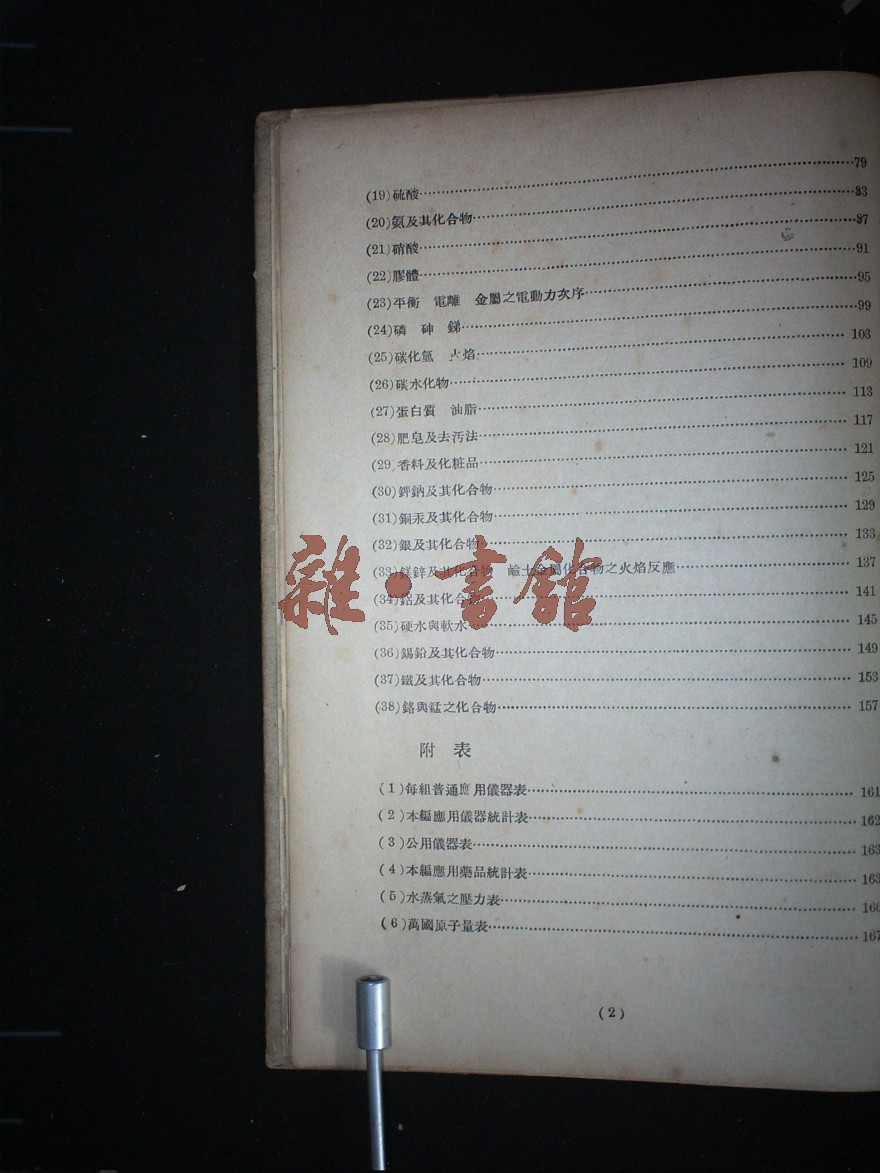 (19)硫酸……79
(20)氨及其化合物……83
(21)硝酸……87
(22)膠體……91
(23)平衡 電離 金屬之電動力次序……95
(24)磷 砷 銻……99
(25)碳化氫 火焰……103
(26)碳水化物……109
(27)蛋白質 油脂……113
(28)肥皂及去汚法……117
(29)香料及化粧品……121
(30)鉀鈉及其化合物……125
(31)銅汞及其化合物……129
(32)銀及其化合物……133
(33)鎂鋅及其化合物 鹼土金屬化合物之火焰反應……137
(34)鋁及其化合物……141
(35)硬水與軟水……145
(36)錫鉛及其化合物……149
(37)鐵及其化合物……153
(38)鉻與錳之化合物……157
附 表
(1)每組普通應用儀器表……161
(2)本編應用儀器統計表……162
(3)公用儀器表……163
(4)本編應用藥品統計表……163
(5)水蒸氣之壓力表……
(6)萬國原子量表……167
(2)
雜·書館